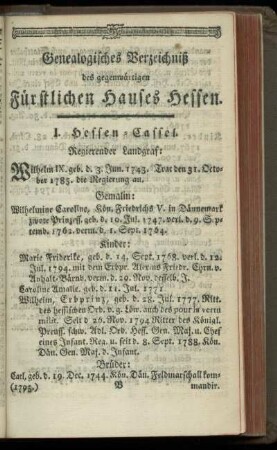 Genealogisches Verzeichniß
des gegenwärtigen
Fürstlichen Hauses Hessen.
I. Hessen-Cassel.
Regierender Landgraf:
Wilhelm IX. geb. d. 3. Jun. 1743. Trat den 31. Octo-
ber 1785. die Regierung an.
Gemalin:
Wilhelmine Caroline, Kön. Friedrichs V. in Dännemark
zwote Prinzess. geb. d. 10. Jul. 1747. verl. d. 9. Sep-
temb. 1762. verm. d. 1. Sept. 1764.
Kinder:
Marie Friderike, geb. d. 14. Sept. 1768. verl. d. 12.
Jul. 1794. mit dem Erbpr. Alexius Friedr. Chrn. v.
Anhalt-Bärnb. verm. d. 29. Nov. desselb. J.
Caroline Amalie. geb. d. 11. Jul. 1771.
Wilhelm, Erbprinz, geb. d. 28. Jul. 1777. Ritt.
des hessischen Ord. v. g. Löw. auch des pour la vertu
milit. Seit d. 26. Nov. 1794 Ritter des Königl.
Preuss. schw. Adl. Ord. Hess. Gen. Maj. u. Chef
eines Infant. Reg. u. seit d. 8. Sept. 1788. Kön.
Dän. Gen. Maj. d. Infant.
Brüder:
Carl, geb. d. 19. Dec. 1744. Kön. Dän. Feldmarschall kom-
(1795.) B mandir.